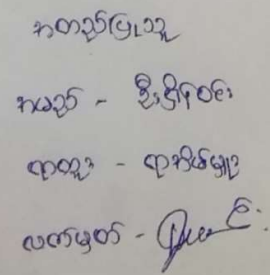 အတည်ပြုသူ
အမည် - ဦးစိုးဝင်း
ရာထူး - ရာအိမ်မှူး
လက်မှတ် -